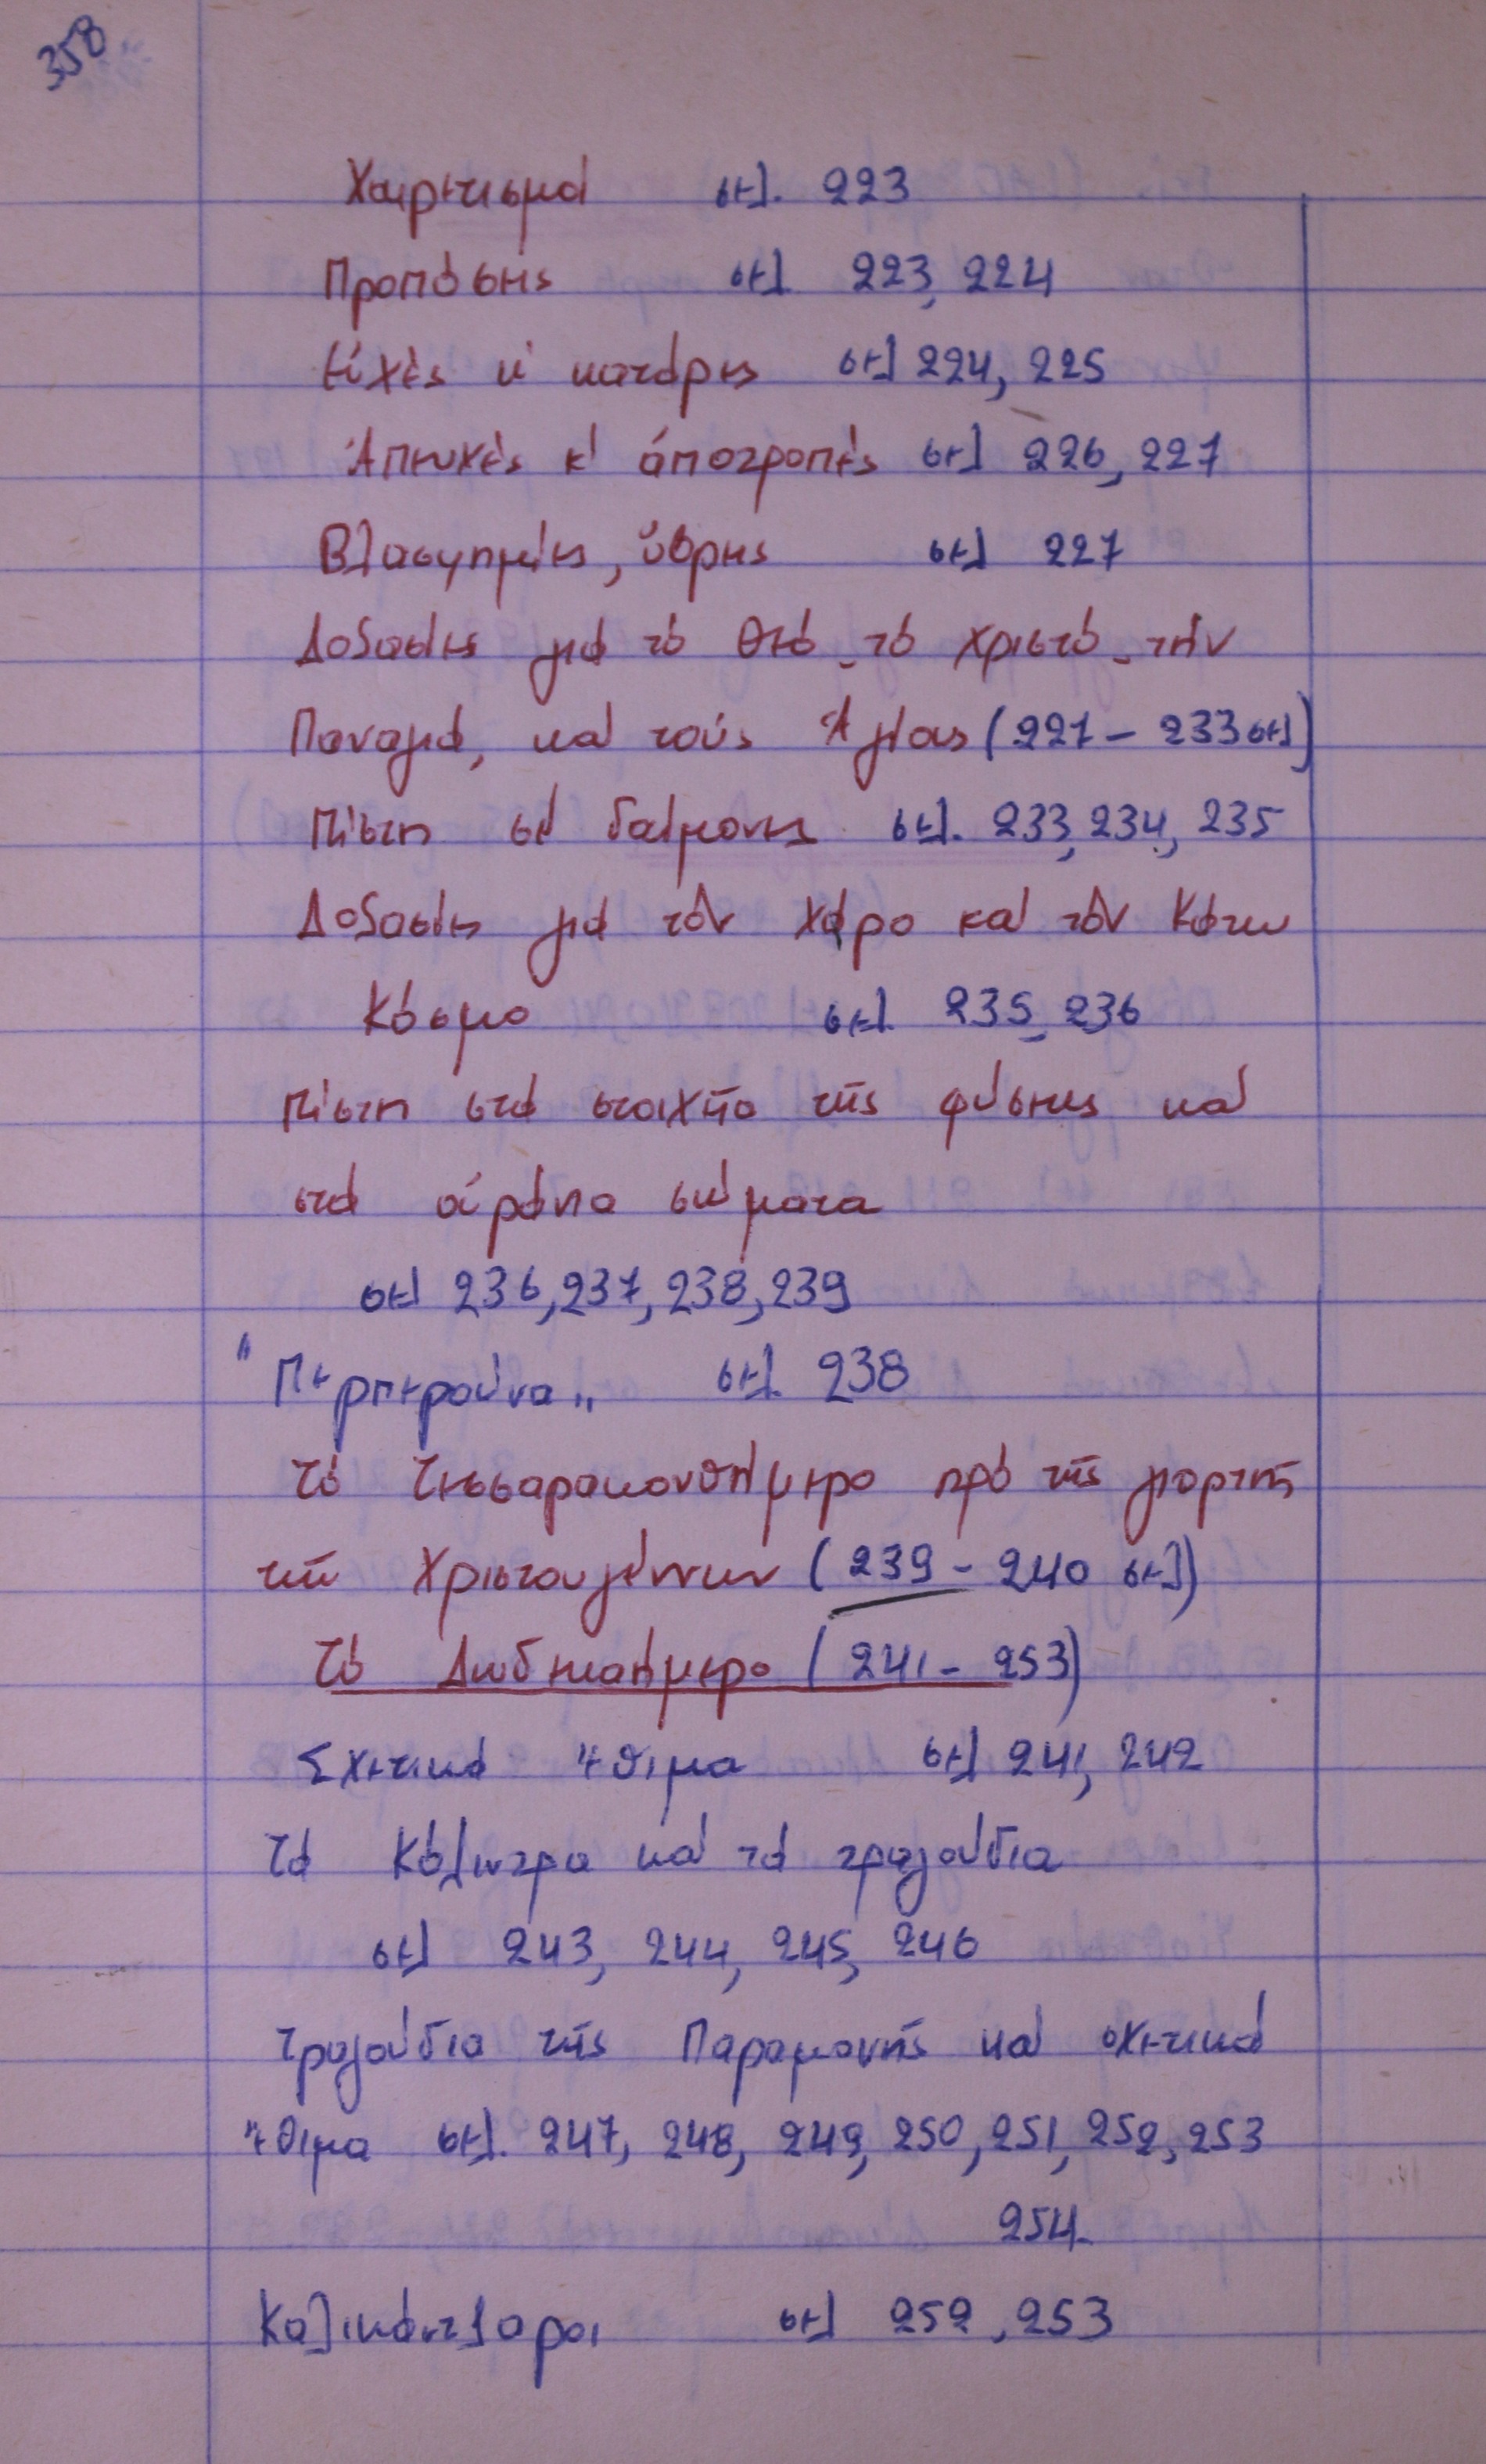 358
Χαιρετισμοί σελ. 223
Προπόσεις σελ 223, 224
Εὐχές κ' κατάρες σελ 224, 225
Ἀπευχές κ' ἀποτροπές σελ 226, 227
Βλασφημίες, ὕβρεις σελ 227
Δοξασίες γιά τό Θεό - τό Χριστό - τήν
Παναγιά, καί τούς Ἁγίους (227 - 233 σελ)
Πίστη σέ δαίμονες σελ. 233, 234, 235
Δοξασίες γιά τόν Χάρο καί τόν Κάτω
Κόσμο σελ. 235 - 236
Πίστη στά στοιχεῖα τῆς φύσεως καί
στά οὐράνια σώματα
σελ 236, 237, 238, 239
"Περπερούνα„ σελ. 238
Τό Τεσσαρακονθήμερο πρό τῆς γιορτῆς
τῶν Χριστουγέννων (239 - 240 σελ)
Τό Δωδεκαήμερο (241 - 253)
Σχετικά ἔθιμα σελ 241, 242
Τά Κόλιντρα καί τά τραγούδια
σελ 243, 244, 245, 246
Τραγούδια τῆς Παραμονῆς καί σχετικά
ἔθιμα σελ. 247, 248, 249, 250, 251, 252, 253
254
Καλικάντζαροι σελ 252, 253